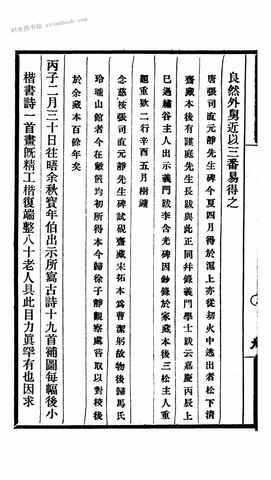 良然外舅近以三番易得之
唐張司直元靜先生碑今夏四月得於滬上亦從刼火中逃出者松下清
齋藏本後有謹庭先生長跋與此正同并錄義門學士跋云嘉慶丙辰上
巳過繡谷主人出示義門跋李含光碑因鈔錄於家藏本後三松主人重
題重欵二行辛酉五月樹鏞
念慈按張司直元靜先生碑試硯齋藏宋拓本爲曹潔躬故物後歸馬氏
玲瓏山館者今在歙汪均初所得本今歸徐子靜觀察處嘗取以對校後
於余藏本百餘年矣
丙子二月三十日往晤余秋室年伯出示所寫古詩十九首補圖每幅後小
楷書詩一首畫旣精工楷復端整八十老人具此目力眞罕有也因求